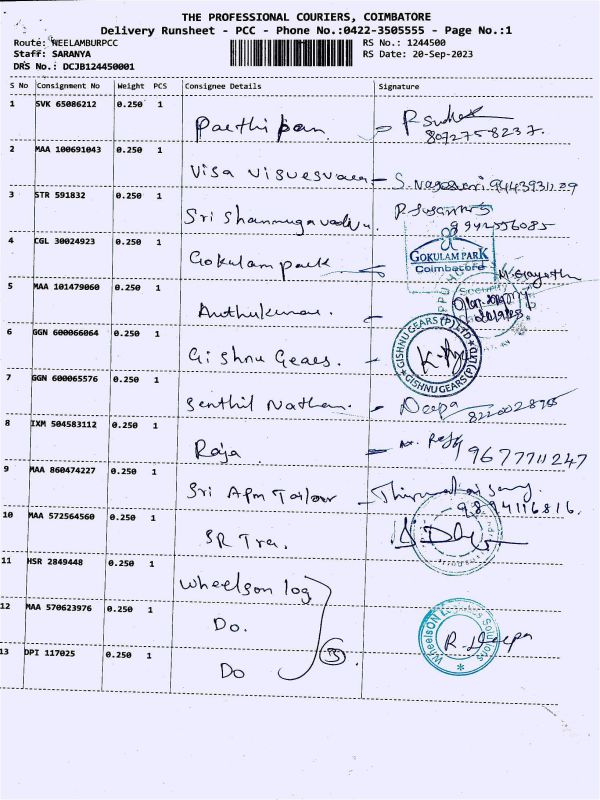 THE PROFESSIONAL COURIERS, COIMBATORE
Delivery Runsheet - PCC - Phone No.:0422-3505555 - Page No.:1
Route: NEELAMBURPCC RS No.: 1244500
Staff: SARANYA RS Date: 20-Sep-2023
DRS No.: DCJB124450001
S No Consignment No Weight PCS Consignee Details Signature
1 SVK 65086212 0.250 1 Paethipan
8072758237.
2 MAA 100691043 0.250 1 Visa Visuesvaea
3 STR 591832 0.250 1 Sri Shanmugavadivu
9942556085
4 CGL 30024923 0.250 1 Gokulam park GOKULAM PARK
Coimbatore
5 MAA 101479060 0.250 1 Anithkumar Security
6 GGN 600066064 0.250 1 Gishnu Geaes. GISHNU GEARS (P) LTD
GISHNU GEARS (P) LTD
7 GGN 600065576 0.250 1 Senthil Nathan. Deepa
8 IXM 504583112 0.250 1 Raja. 9677711247
9 MAA 860474227 0.250 1 Sri Apm Tailour
9894116816.
10 MAA 572564560 0.250 1 SR Tra.
11 HSR 2849448 0.250 1 Wheelson log
12 MAA 570623976 0.250 1 Do. WheelsON Solutions
R. Deepa
13 DPI 117025 0.250 1 Do